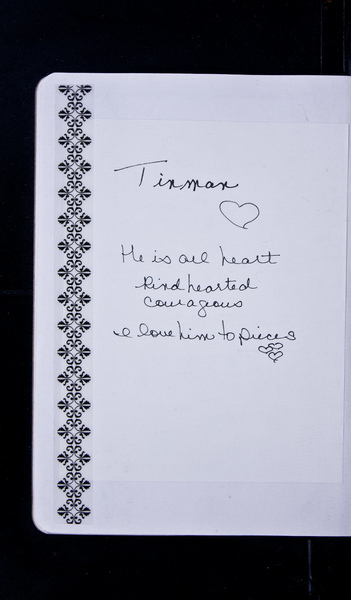 Tinman
He is all heart
Kind hearted
Courageous
I love him to pieces